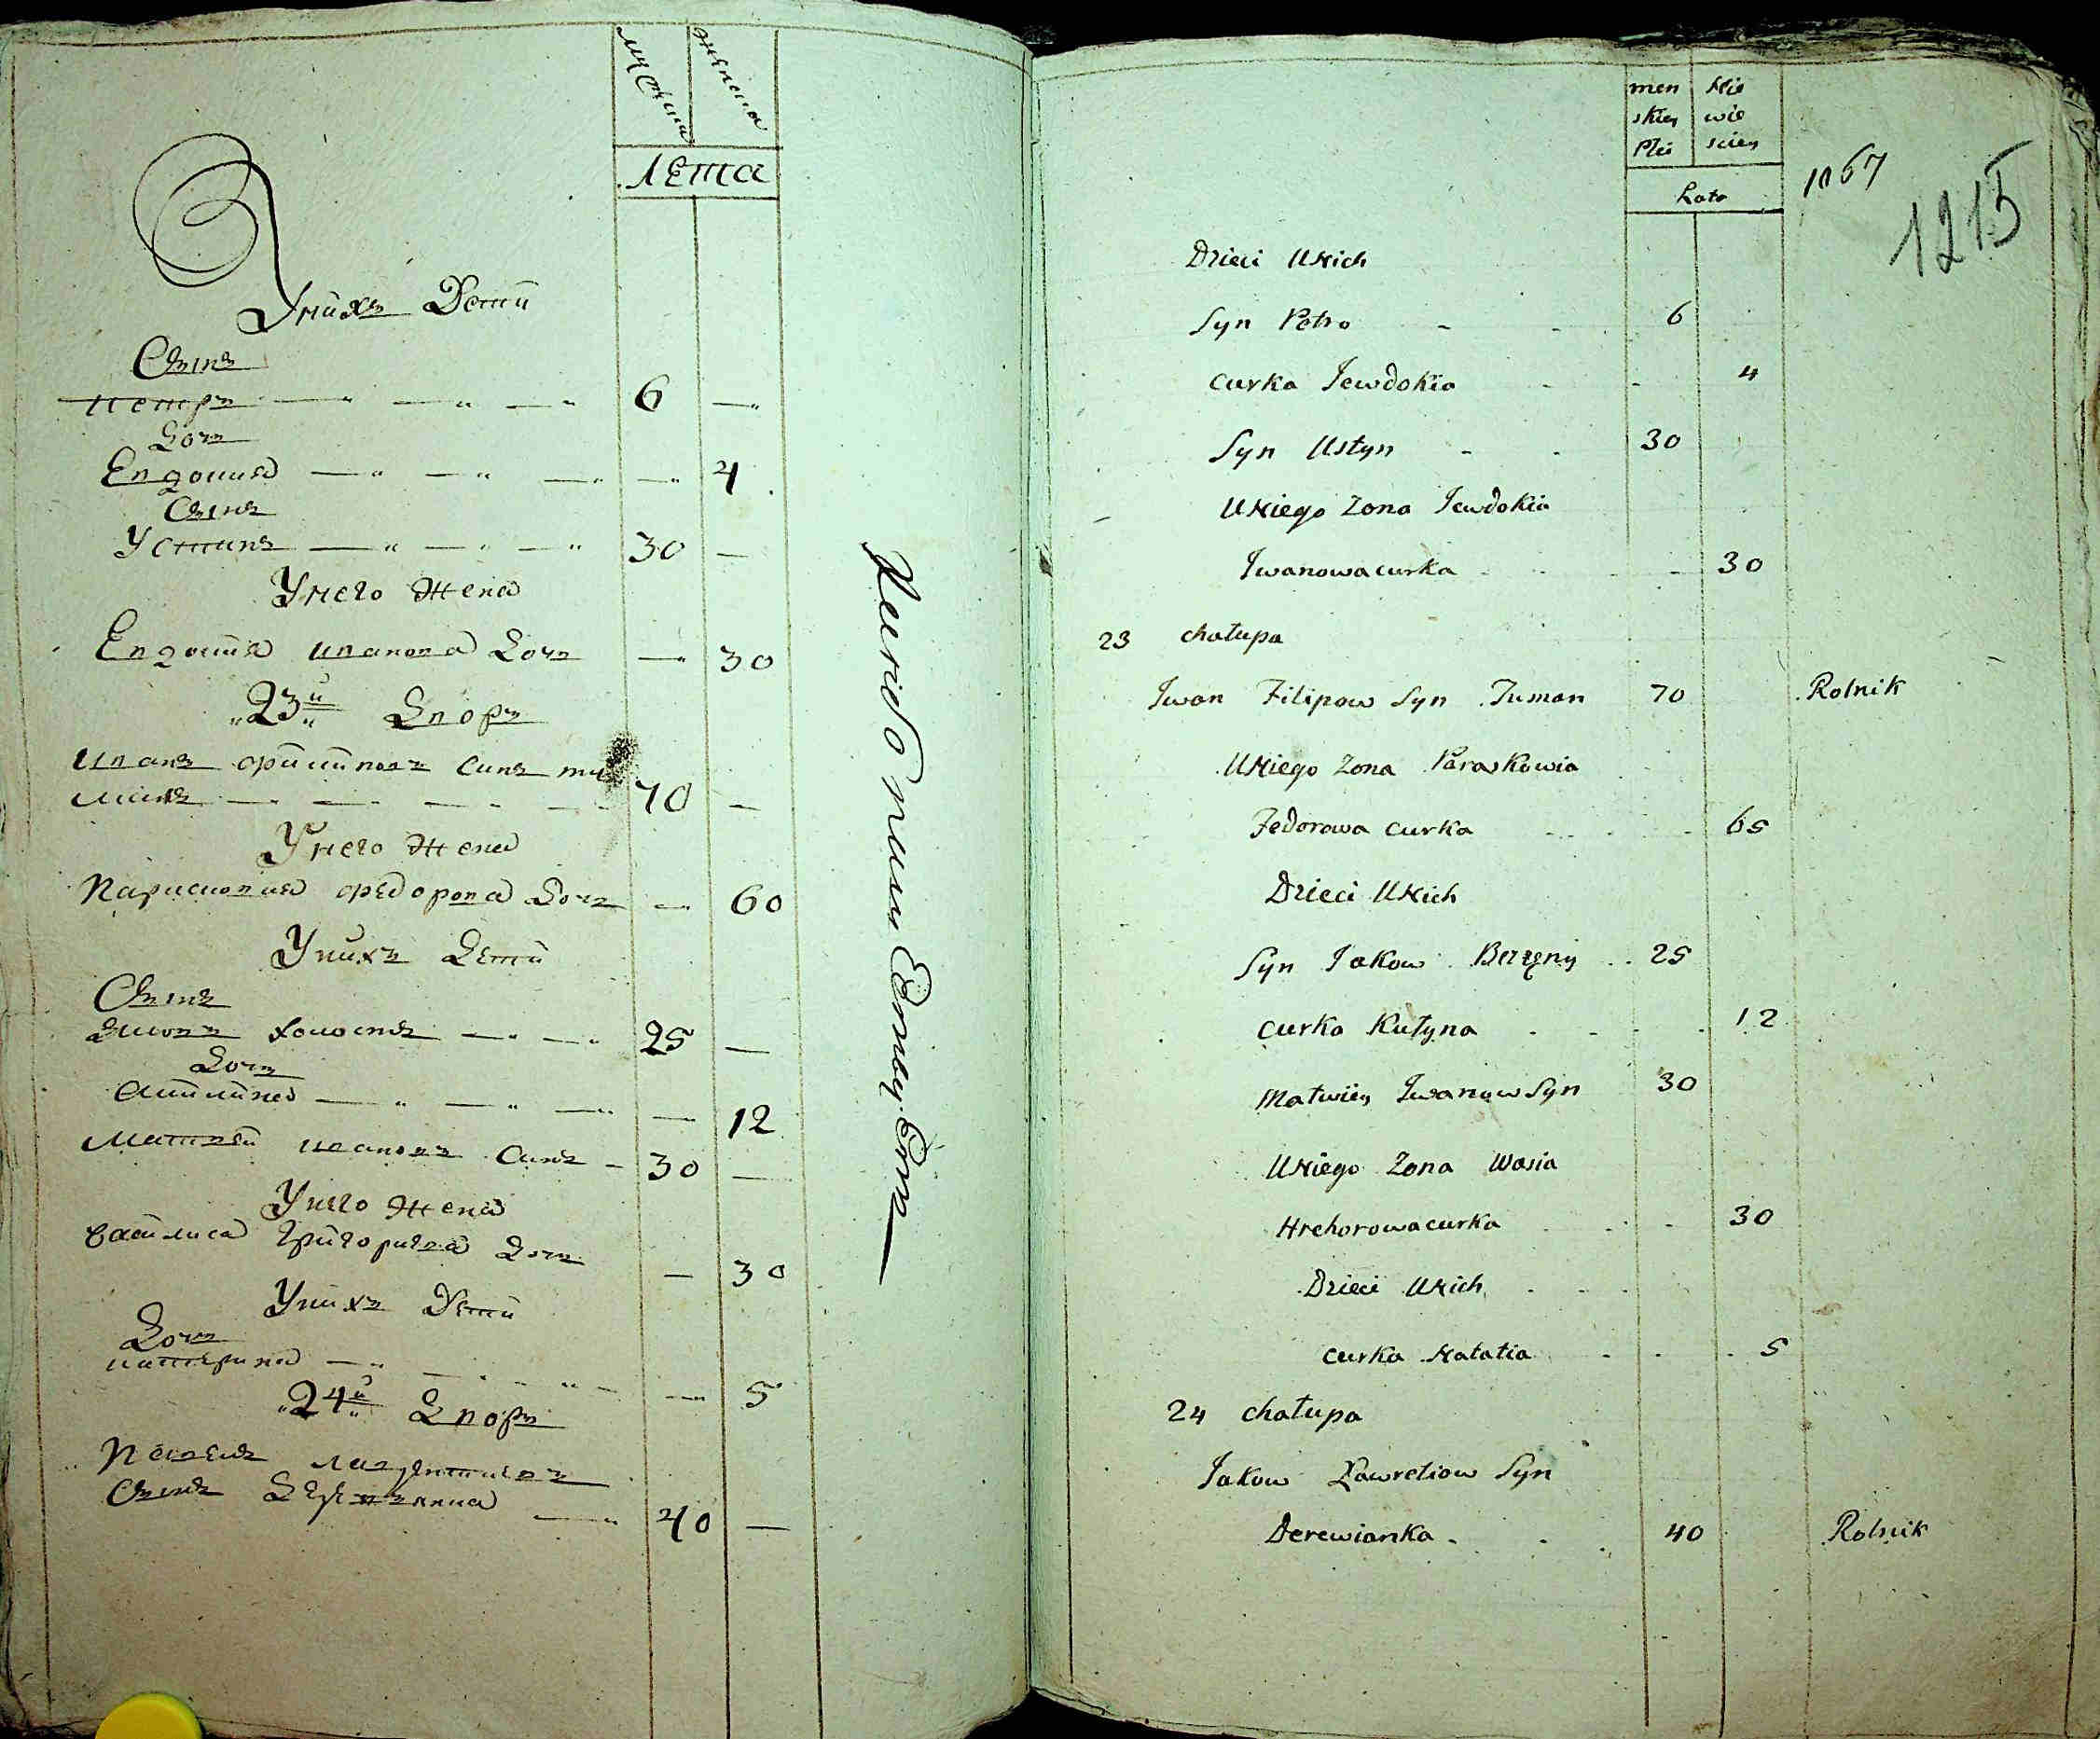 мужеска
женска
Лета
Унихъ Дети
Сынъ
петръ 6 —
Доч
Евдокия — 4
Сынъ
Устинъ 30 —
Унего жена
Евдокия иванова Доч — 30
23й Дворъ
иванъ филиповъ синъ ту
манъ 70 —
Унего жена
Парасковия федорова Доч — 60
Унихъ Дети
Сынъ
Яковъ 25 —
Доч
Акилина — 12
Матвей ивановъ синъ 30 —
Унего жена
Василиса григориева Доч — 30
Унихъ Дети
Доч
катерина — 5
24й Дворъ
Сынъ Деревянка 40 —
men Nie
skiey wie
Płci sciey
Lata
1067
1215
Dzieci UNich
Syn Petro 6
curka Jewdokia 4
Syn Ustyn 30
UNiego Zona Jewdokia
Iwanowa curka 30
23 chałupa
Iwan Filipow Syn Tuman 70 Rolnik
UNiego Zona Paraskowia
Fedorowa curka 65
Dzieci UNich
Syn Jakow 25
curka Kułyna 12
Matwiey Iwanow Syn 30
UNiego Zona Wasia
Hrehorowa curka 30
Dzieci UNich
curka Natalia 5
24 chałupa
Jakow Ławretiow Syn
Derewianka 40 Rolnik